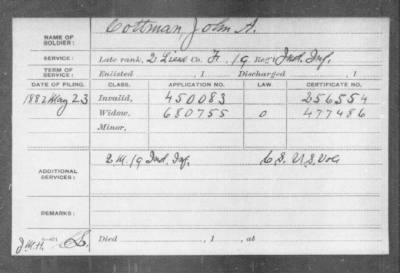 NAME OF SOLDIER: Cottman, John A.
SERVICE: Late rank, 2 Lieut Co. F, 19 Reg't Ind. Inf.
TERM OF SERVICE: Enlisted , 1 Discharged , 1
DATE OF FILING. CLASS. APPLICATION NO. LAW CERTIFICATE NO.
1882 May 23 Invalid, 450083 256554
Widow, 680755 0 477486
Minor,
ADDITIONAL SERVICES: 2. M. 19 Ind. Inf. C.S. U.S. Vols
REMARKS:
J.M.H. Died , 1 , at